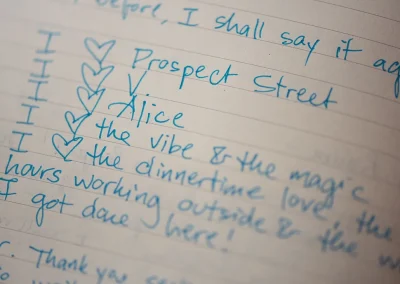 before, I shall say it ag
I ♡ Prospect Street
I ♡
I ♡ Alice
I ♡ the vibe & the magic
I ♡ the dinnertime love, the
hours working outside & the
I got done here!
Thank you